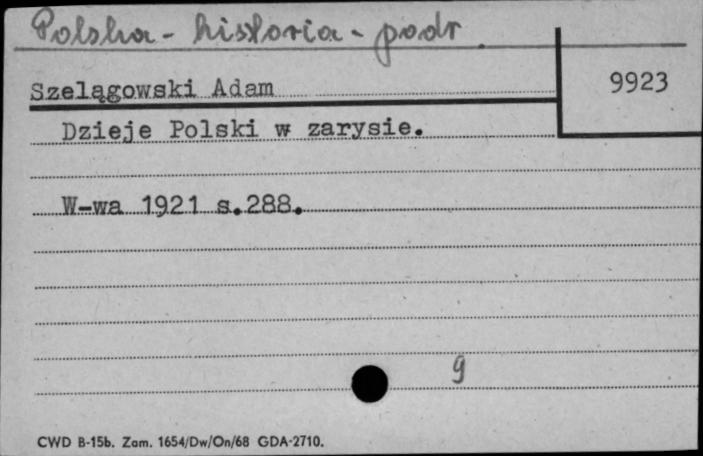 Polska - historia - podr.
Szelągowski Adam
9923
Dzieje Polski w zarysie.
W-wa 1921 s.288.
9
CWD B-15b. Zam. 1654/Dw/On/68 GDA-2710.